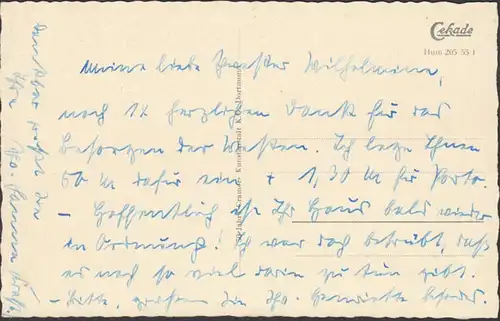 Cekade
Hum 205/55/1
Meine liebe Schwester Wilhelmine,
noch 1x herzlichen Dank für das
Besorgen der Westen. Ich lege Ihnen
50 M dafür ein + 1,30 M für Porto.
- Hoffentlich ist Ihr Haus bald wieder
in Ordnung! Ich war doch betrübt, daß
es noch so viel darin zu tun gibt.
- Bitte, grüßen Sie Schw. Henriette
Dankbar grüßt Sie
Ihre